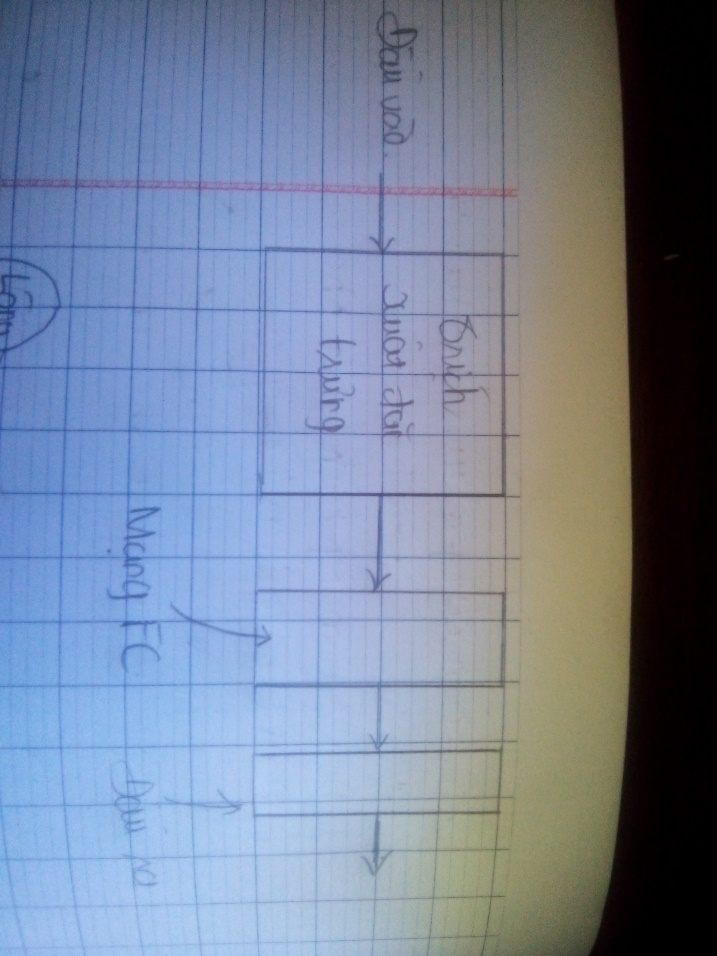 Đầu vào
Trích
xuất đặc
trưng
Mạng FC
Đầu ra